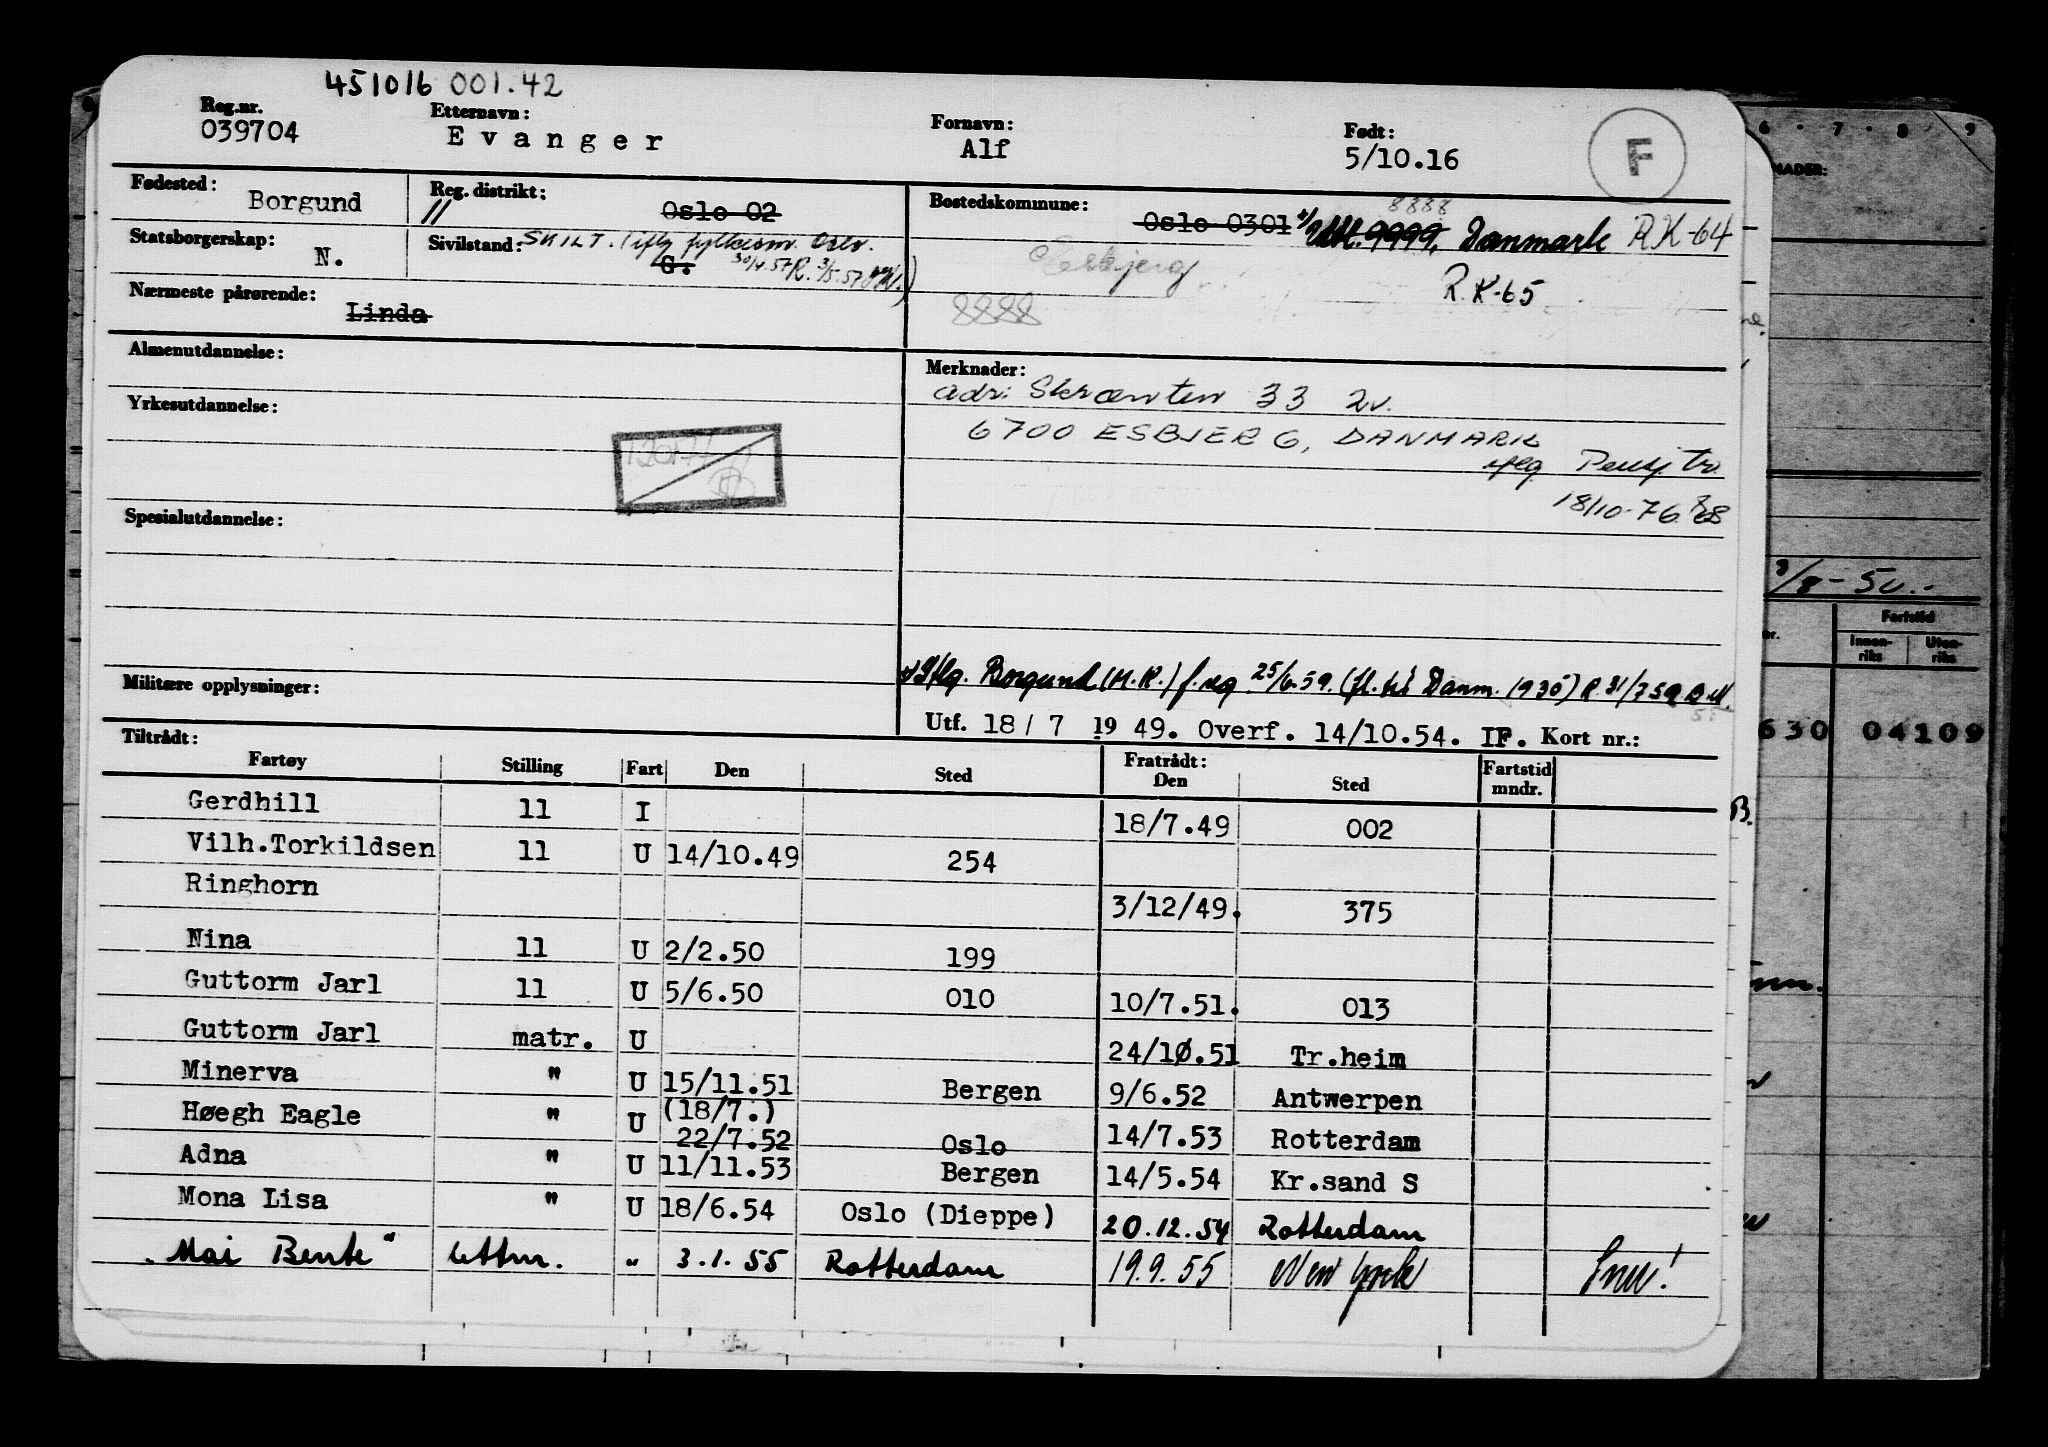 451016 001.42
Reg.nr. Etternavn: Fornavn: Født:
039704 Evanger Alf 5/10.16 F
Fødested: Borgund
Reg. distrikt: Oslo 02
11
Bostedskommune: Oslo 0301 Utl. 9999. Danmark RK-64
8888
Statsborgerskap: N.
Sivilstand: SKILT. iflg fylkesm. Oslo.
G. 30/4.57 R. 3/5.57
Esbjerg R.K-65
8888
Nærmeste pårørende: Linda
Almenutdannelse:
Merknader:
adr: Skrænten 33 2v.
Yrkesutdannelse:
6700 ESBJERG, DANMARK
iflg Pensj tr.
18/10-76.
Spesialutdannelse:
Iflg. Borgund (M.R.) f.reg 25/6.59. (fl. til Danm. 1935) R. 31/7 59. B.M.
Militære opplysninger:
Utf. 18/7 1949. Overf. 14/10.54. IF. Kort nr.:
Tiltrådt: Fratrådt:
Fartøy Stilling Fart Den Sted Den Sted Fartstid mndr.
Gerdhill 11 I 18/7.49 002
Vilh.Torkildsen 11 U 14/10.49 254
Ringhorn 3/12/49. 375
Nina 11 U 2/2.50 199
Guttorm Jarl 11 U 5/6.50 010 10/7.51. 013
Guttorm Jarl matr. U 24/10.51 Tr.heim
Minerva " U 15/11.51 Bergen 9/6.52 Antwerpen
(18/7.)
Høegh Eagle " U 22/7.52 Oslo 14/7.53 Rotterdam
Adna " U 11/11.53 Bergen 14/5.54 Kr.sand S
Mona Lisa " U 18/6.54 Oslo (Dieppe) 20.12.54 Rotterdam
"Mai Bente" lettm. " 3.1.55 Rotterdam 19.9.55 New York Snu!
6 7 8 9
NADER:
3/8-50.-
Fartstid
Innen-riks Uten-riks
630 04109
B.